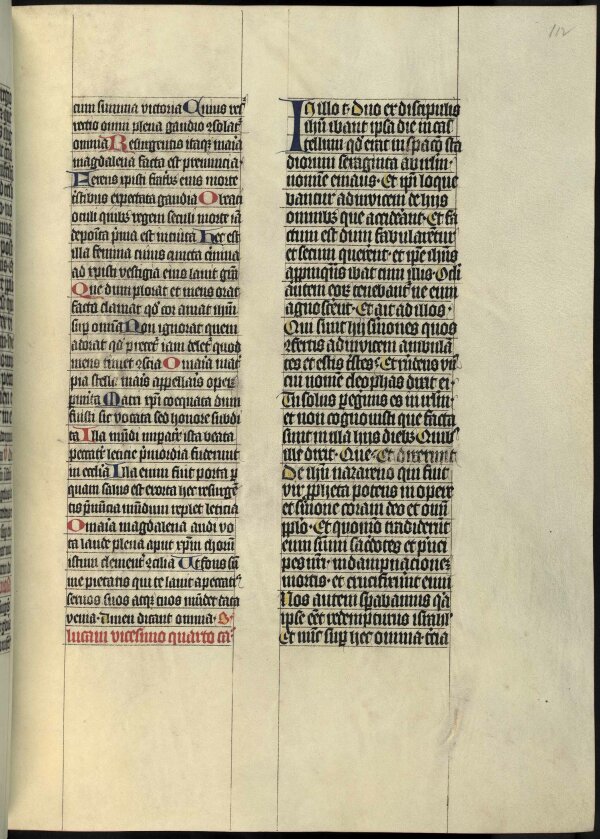 cum summa victoria Cuius res²
rectio omni plena gaudio ↄsolat²
omnia Resurgentis itaqꝫ maria
magdalena facta est prenuncia
Ferens xpisti fratribꝫ eius morte
tristibus expectata gaudia O beati
oculi quibꝫ regem seculi morte iā
deposita pⁱma est intuita Hec est
illa femina cuius cuncta cⁱmina
ad xpisti vestigia eius lauit grā
Que dum plorat et mens orat
facto clamat qd̄ cor amat ihm̄
sup̄ omnia Non ignorat quem
adorat qd̄ precet² iam delet² quod
mens timet ↄscia O maria mat²
pia stella maris appellaris operꝝ
p merita Matri xp̄i coequata dum
fuisti sic vocata sed honore subdi
ta Illa mūdi imperatⁱx ista beata
peccatⁱx leticie pⁱmordia fuderunt
in ecclīa Illa enim fuit porta p
quam salus est exorta hec resurgē
tis p̄nuncia mūdum replet leticia
O maria magdalena audi vo
ta laude plena aput xp̄m chorū
istum clement² ↄcilia Ut fons sū
me pietatis qui te lauit a peccatis
seruos suos atqꝫ tuos mūdet data
venia · Amen dicant omnia · S·
lucam vicesimo quarto ca̅
In illo t· Duo ex discipulis
ihū ibant ipsa die in cas
tellum qd̄ erat in spacio sta
diorum sexaginta ab ihrl̄m ·
nomīe emaus · Et ipī loque
bantur adinuicem de hijs
omnibꝫ que acciderāt · Et fa
ctum est dum fabularent²
et secum querent · et ipe ihūs
appⁱnquās ibat cum illis · Oc̄li
autem eoꝝ tenebant² ne eum
agnoscerent · Et ait ad illos ·
Qui sunt hij sermones quos
ↄfertis adinuicem ambulā
tes et estis tⁱstes · Et respondens vn²
cui nomē cleophas dixit ei ·
Tu solus pegⁱnus es in ihrl̄m
et non cognouisti que facta
sunt in illa hijs diebꝫ · Quibꝫ
ille dixit · Que · Et dixerunt
De ihū nazareno qui fuit
vir ꝓpheta potens in opere
et smōne coram deo et omī
pplo · Et quomō tradiderūt
eum sūmi sacerdotes et pⁱnci
pes nrī · in dampnacionem
mortis · et crucifixerunt eum
Nos autem spabamus qa
ipse eēt redempturus israhl̄
Et nūc sup hec omnia tⁱcia